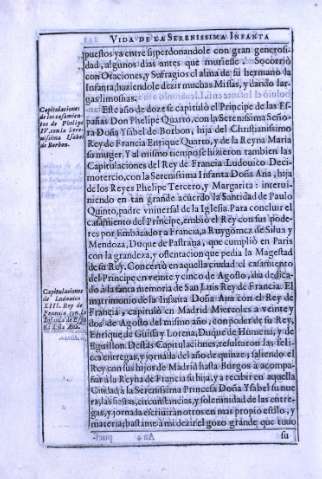 VIDA DE LA SERENISSIMA INFANTA
puestos ya entre si perdonandole con gran generosi-
dad, algunos dias antes que muriesse. Socorriò
con Oraciones, y Sufragios el alma de su hermano la
Infanta, haziendole dezir muchas Missas, y dando lar-
gas limosnas.
Capitulaciones
de los casamien-
tos de Phelipe
IV. con la Sere-
nissima Ysabel
de Borbon.
Este año de doze se capitulò el Principe de las Es-
pañas Don Phelipe Quarto, con la Serenissima Seño-
ra Doña Ysabel de Borbon, hija del Christianissimo
Rey de Francia Enrique Quarto, y de la Reyna Maria
su muger. Y al mismo tiempo se hizieron tambien las
Capitulaciones del Rey de Francia Ludouico Deci-
motercio, con la Serenissima Infanta Doña Ana, hija
de los Reyes Phelipe Tercero, y Margarita: interui-
niendo en tan grande acuerdo la Santidad de Paulo
Quinto, padre vniuersal de la Iglesia. Para concluir el
casamiento del Principe, embiò el Rey con sus pode-
res por Embaxador a Francia, a Ruygomez de Silua y
Mendoza, Duque de Pastrana, que cumpliò en Paris
con la grandeza, y ostentacion que pedia la Magestad
de su Rey. Concertò en aquella ciudad el casamiento
del Principe en veinte y cinco de Agosto, dia dedica-
do a la santa memoria de San Luis Rey de Francia. El
Capitulaciones
de Ludouico
XIII. Rey de
Francia con la
Infanta de Espa
ña Doña Ana.
matrimonio de la Infanta Doña Ana con el Rey de
Francia, capitulò en Madrid Miercoles a veinte y
dos de Agosto del mismo año, con poder de su Rey,
Enrique de Guisa y Lorena, Duque de Humena, y de
Eguillon. Destas Capitulaciones, resultaron las feli-
ces entregas, y jornada del año de quinze; saliendo el
Rey con sus hijos de Madrid hasta Burgos a acompa-
ñar a la Reyna de Francia su hija, y a recibir en aquella
Ciudad à la Serenissima Princesa Doña Ysabel su nue
ra, las fiestas, circunstancias, y solemnidad de las entre-
gas, y jornada escriuiran otros en mas propio estilo, y
materia; bastame à mi dezir el gozo grande que tuuo
su